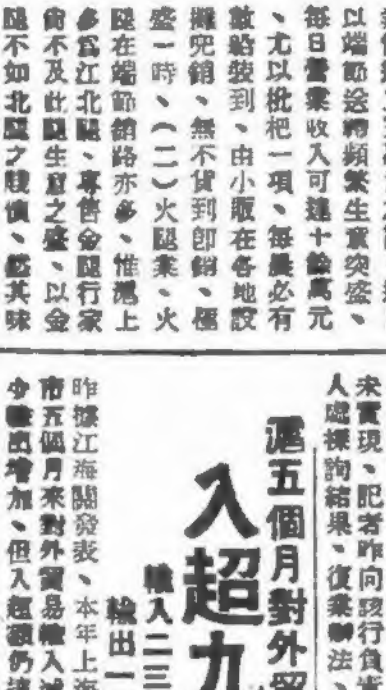 以端節送禮頻繁生意突盛、
每日營業收入可達十餘萬元
、尤以枇杷一項、每晨必有
數船裝到、由小販在各地設
攤兜銷、無不貨到卽銷、極
盛一時、(二)火腿業、火
腿在端節銷路亦多、惟滬上
多爲江北腿、專售金腿行家
尙不及北腿生意之盛、以金
腿不如北腿之賤價、
其味
未實現、記者昨向該行負責
人處探詢結果、復業辦法、
滬五個月對外貿
入超九
輸入二三
輸出一
昨據江海關發表、本年上海
市五個月來對外貿易輸入減
少輸出增加、但入超額仍達